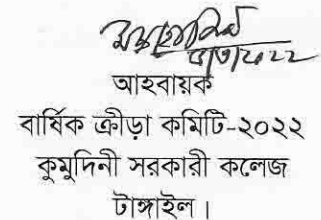 ৮/৩/২০২২
আহবায়ক
বার্ষিক ক্রীড়া কমিটি-২০২২
কুমুদিনী সরকারী কলেজ
টাঙ্গাইল।